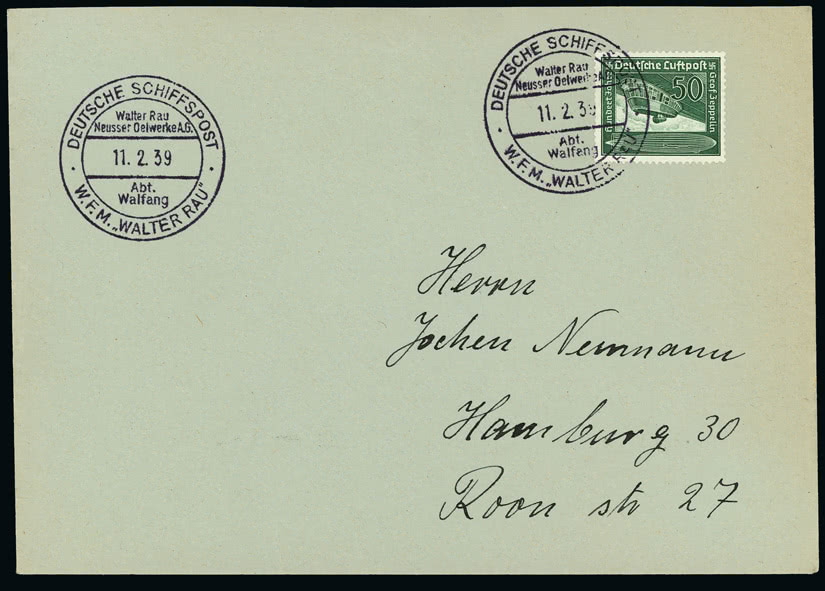 DEUTSCHE SCHIFFSPOST
Walter Rau
Neusser Oelwerke A.G.
11. 2. 39
Abt.
Walfang
W.F.M. „WALTER RAU"
DEUTSCHE SCHIFFSPOST
Walter Rau
Neusser Oelwerke A.
11. 2. 39
Abt.
Walfang
W.F.M. „WALTER RAU"
Deutsche Luftpost
50
Hundert Jahre
Graf Zeppelin
Herrn
Jochen Neumann
Hamburg 30
Roon str 27